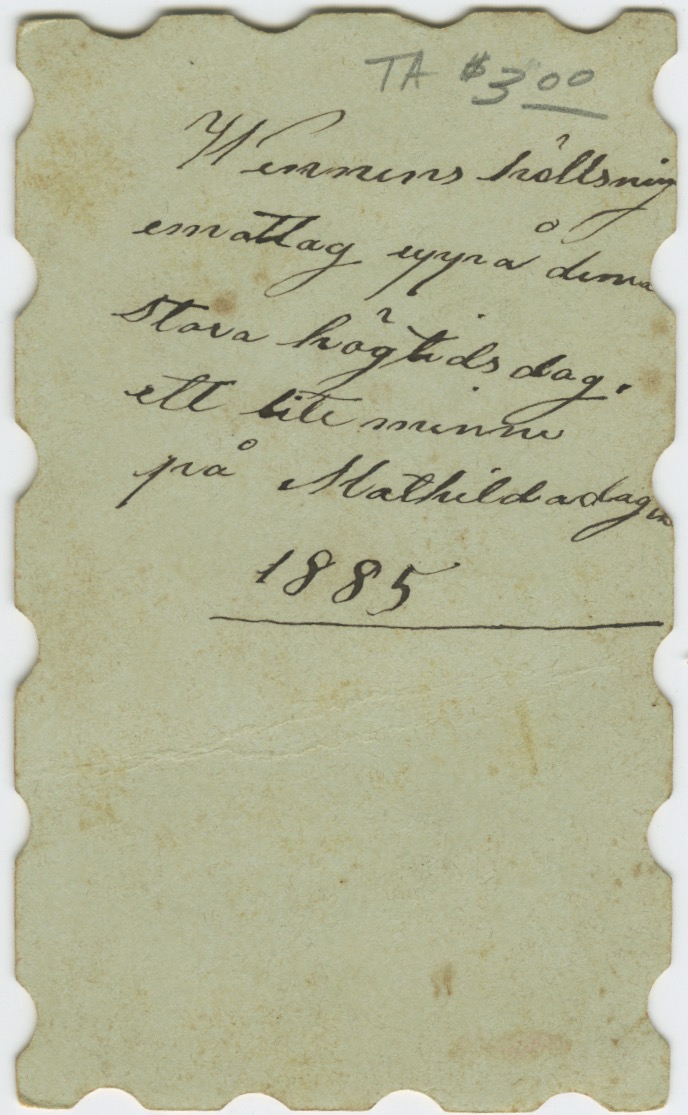 TA $3.00
Wennens hällsning
emottag uppå denna
stora högtids dag.
ett lite minne
på Mathildadagen
1885